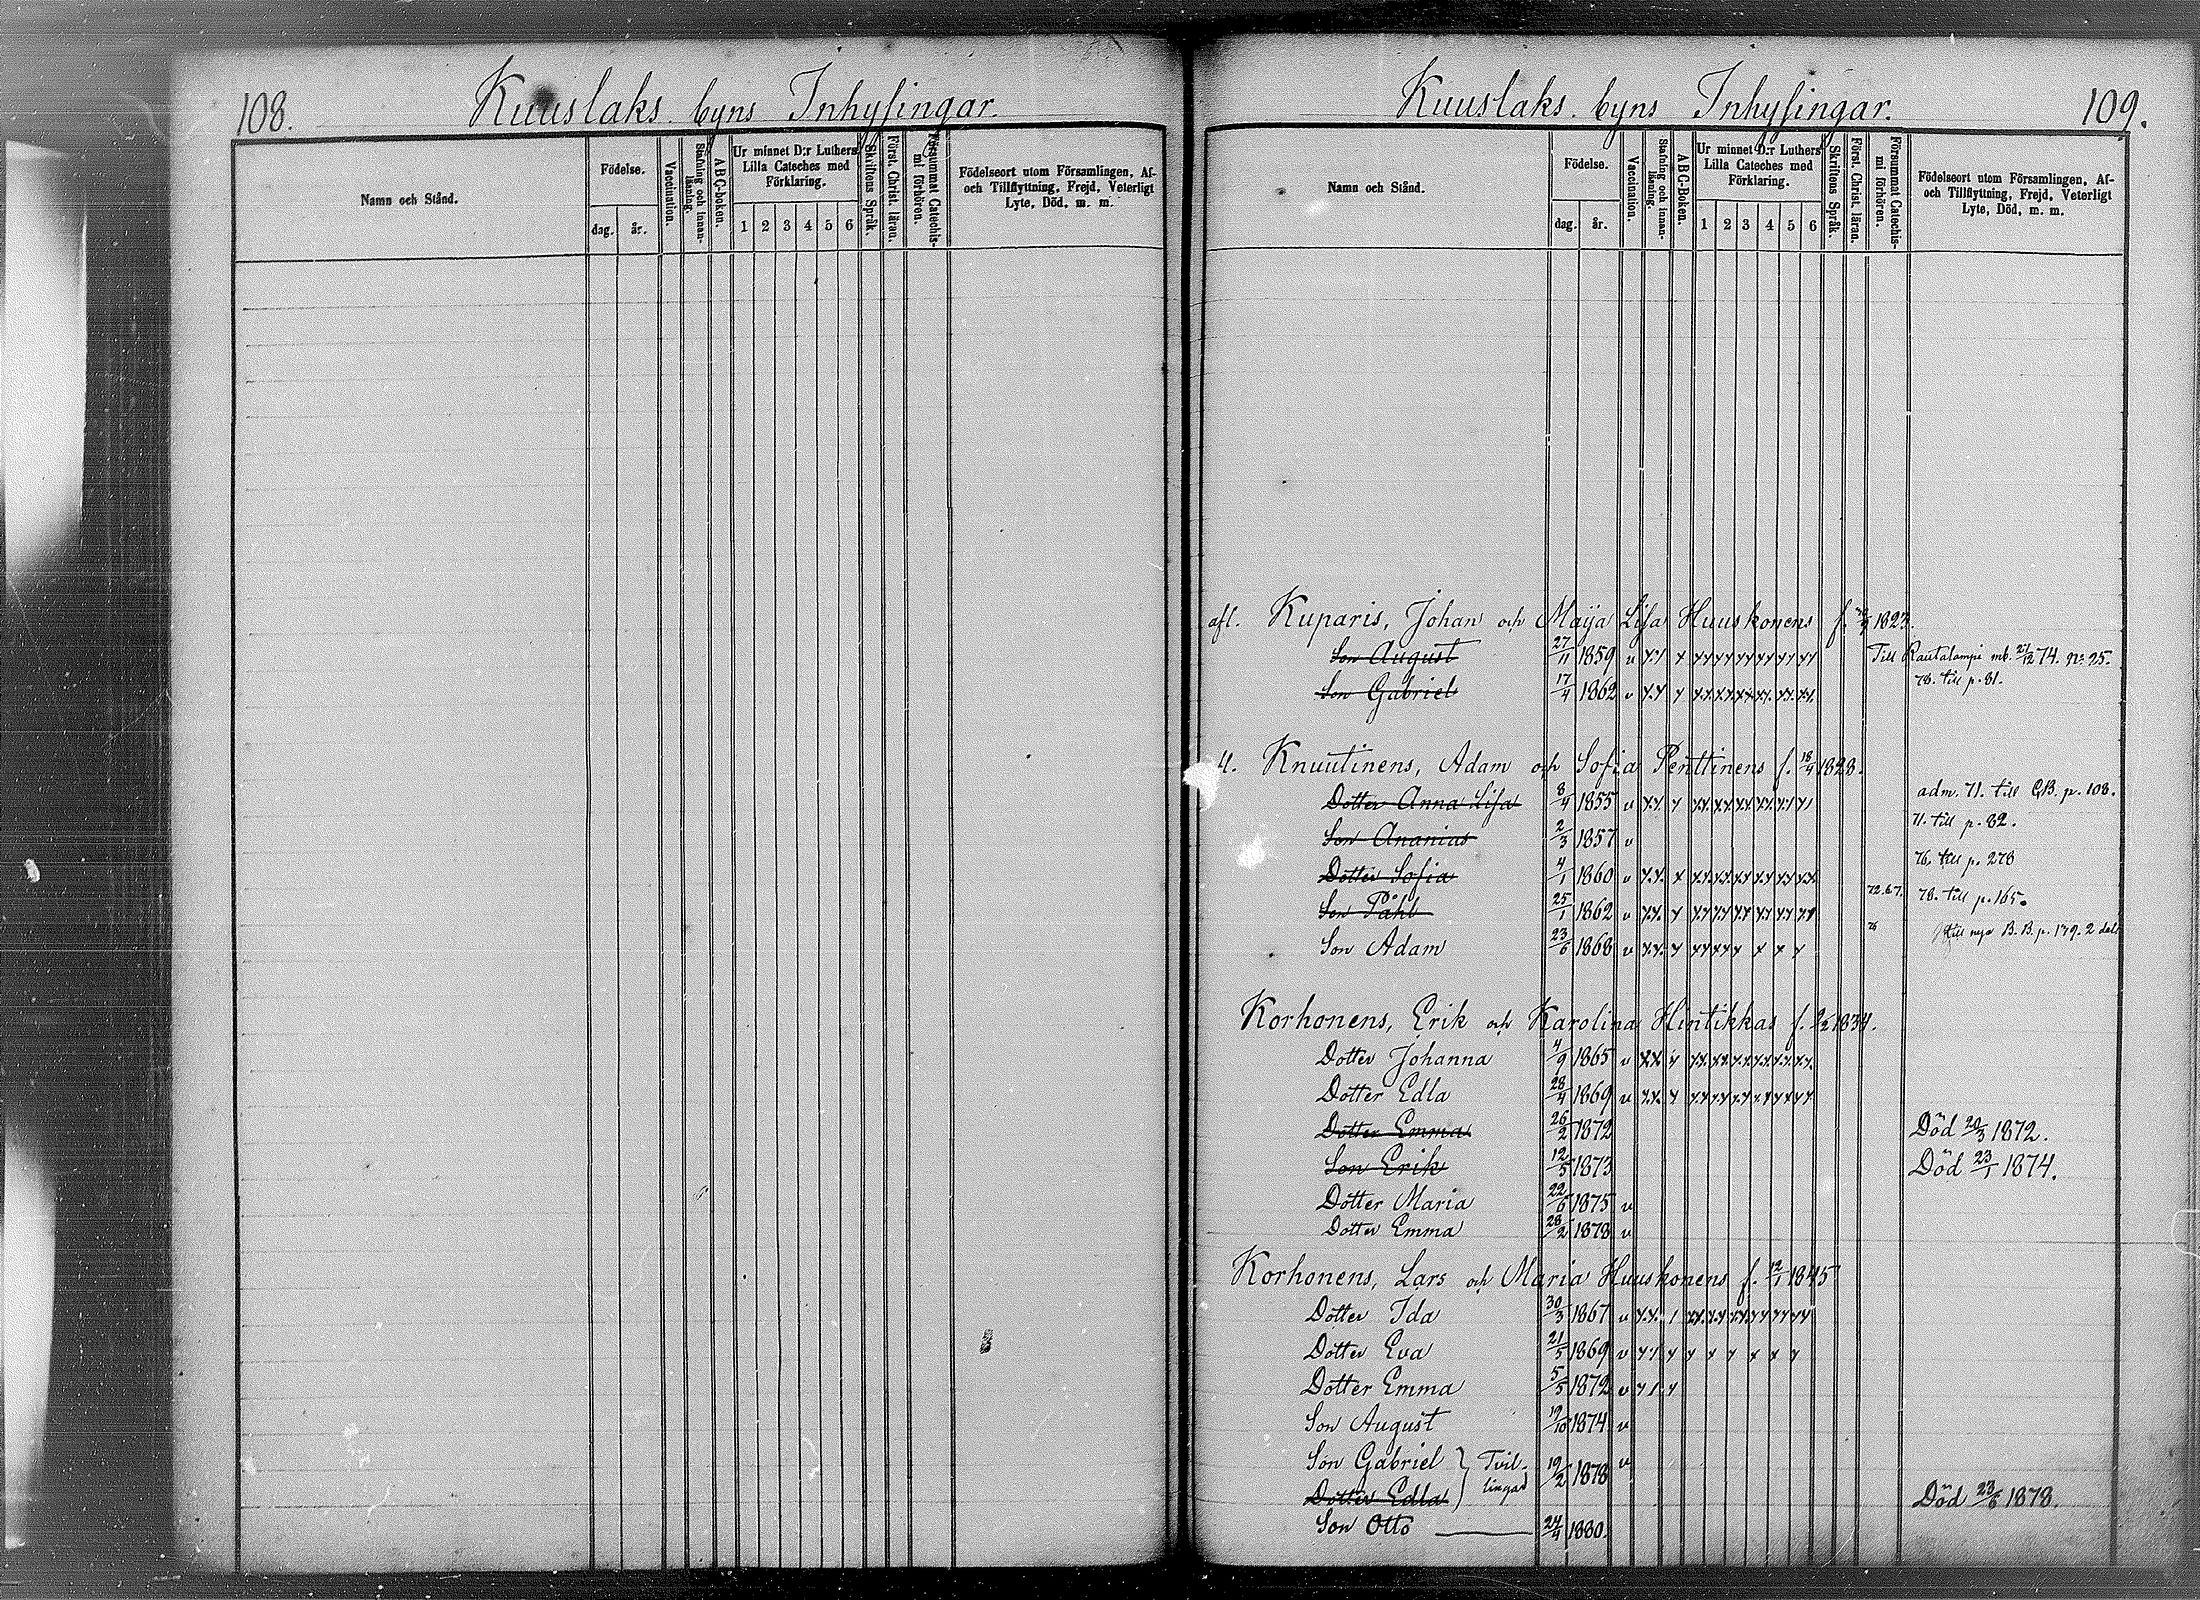 108.
Kuuslaks byns Inhysingar.
Namn och Stånd.
Födelse.
dag. år.
Vaccination.
Stafning och innanläsning.
ABC-Boken.
Ur minnet D:r Luthers Lilla Cateches med Förklaring.
1 2 3 4 5 6
Skriftens Språk.
Först. Christ. läran.
Försummat Catechismi förhören.
Födelseort utom Församlingen, Af- och Tillflyttning, Frejd, Veterligt Lyte, Död, m. m.
Kuuslaks byns Inhysingar.
109.
Namn och Stånd.
Födelse.
dag. år.
Vaccination.
Stafning och innanläsning.
ABC-Boken.
Ur minnet D:r Luthers Lilla Cateches med Förklaring.
1 2 3 4 5 6
Skriftens Språk.
Först. Christ. läran.
Försummat Catechismi förhören.
Födelseort utom Församlingen, Af- och Tillflyttning, Frejd, Veterligt Lyte, Död, m. m.
afl. Kuparis, Johan och Maija Lisa Huuskonens f. 1823.
Son August 27/11 1859 v Till Rautalampi mb. 21/12 74. No 25.
Son Gabriel 17/4 1862 v 78. till p. 81.
Knuutinens, Adam och Sofia Penttinens f. 18/4 1828.
Dotter Anna Lisa 8/4 1855 v adm. 71. till p. 108.
Son Ananias 2/3 1857 v 71. till p. 82.
Dotter Sofia 4/1 1860 v 76. till p. 278
Son Påhl 25/1 1862 v 78. till p. 165.
Son Adam 23/6 1868 v till nya B. B. p. 179. 2 del
Korhonens, Erik och Karolina Hintikkas f. 1834.
Dotter Johanna 4/9 1865 v
Dotter Edla 28/4 1869 v
Dotter Emma 26/2 1872 Död 20/3 1872.
Son Erik 12/5 1873 Död 23/1 1874.
Dotter Maria 22/6 1875 v
Dotter Emma 28/2 1878 v
Korhonens, Lars och Maria Huuskonens f. 12/1 1845
Dotter Ida 30/3 1867 v
Dotter Eva 21/5 1869 v
Dotter Emma 5/5 1872 v
Son August 19/10 1874 v
Son Gabriel } Tvillingar 19/2 1878 v
Dotter Edla Död 23/6 1878.
Son Otto 24/4 1880.